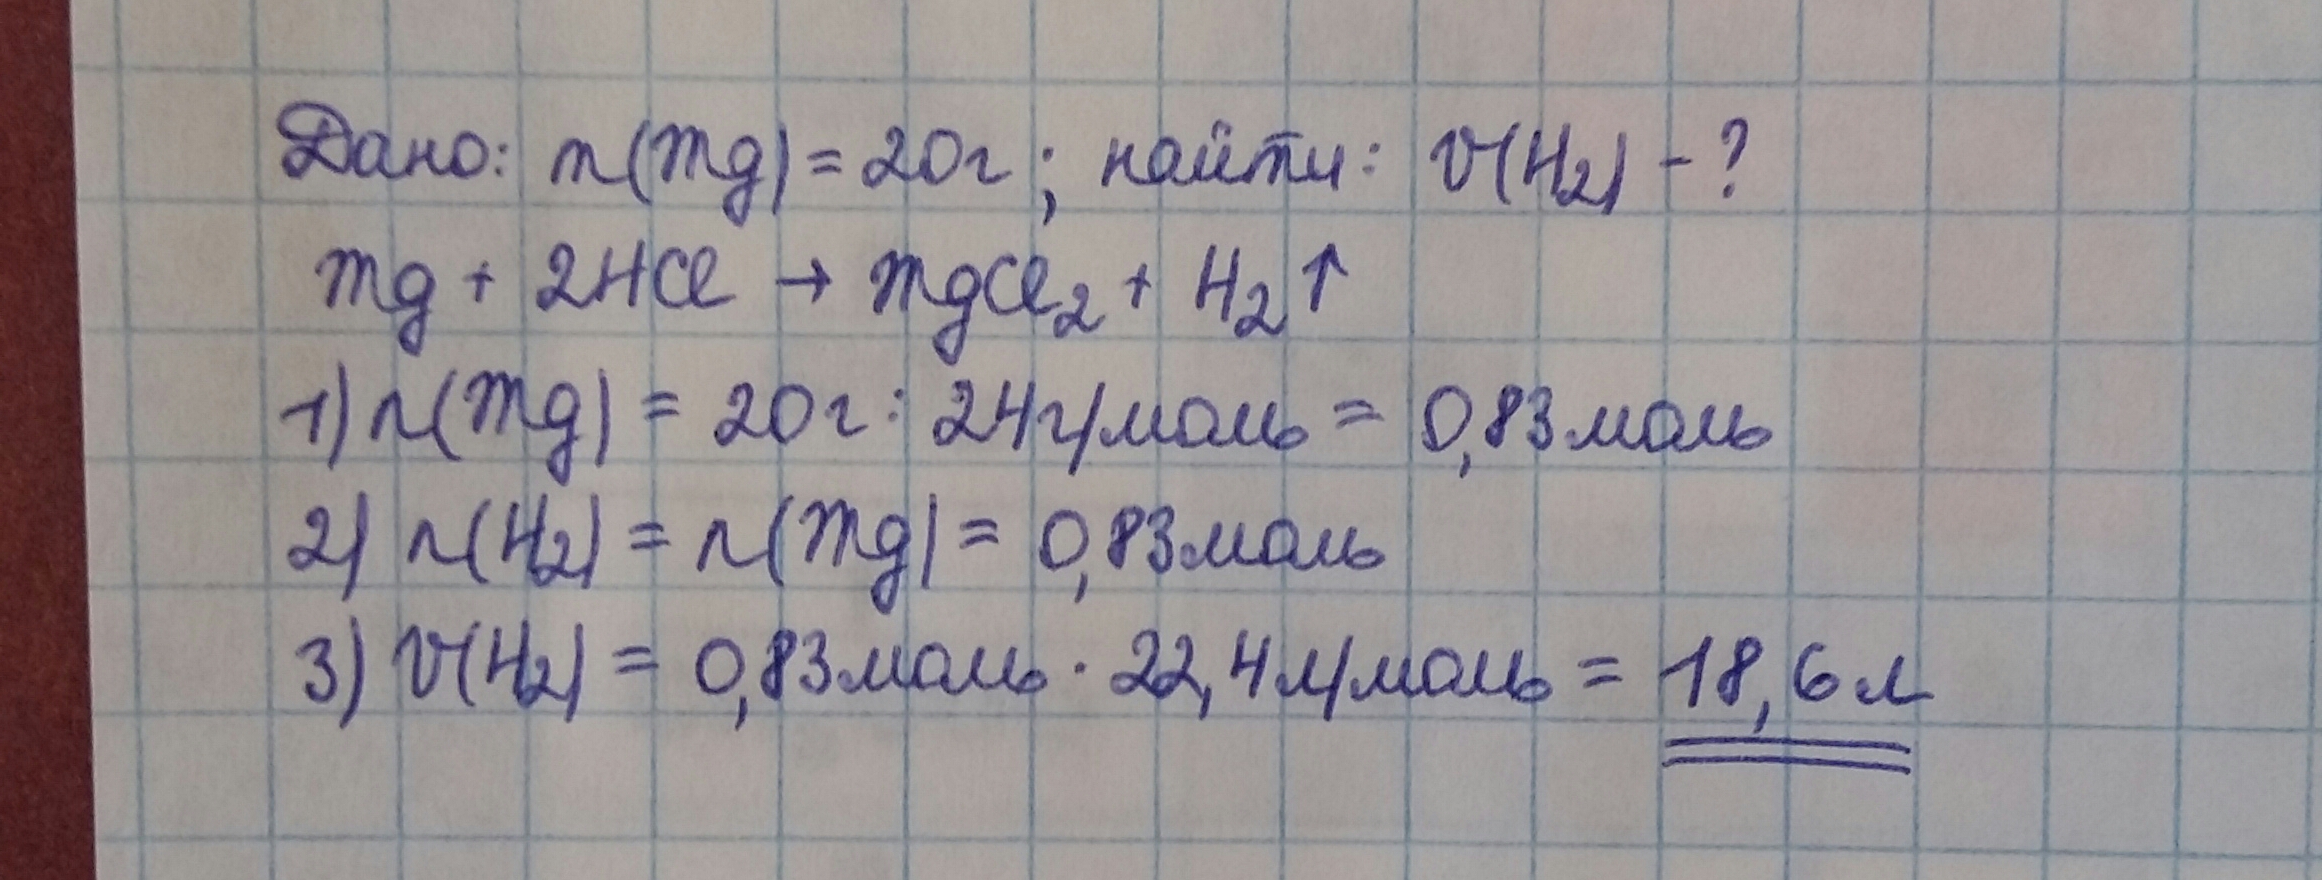 Дано: m(Mg) = 20г; найти: V(H₂) - ?
Mg + 2HCl → MgCl₂ + H₂↑
1) n(Mg) = 20г : 24г/моль = 0,83моль
2) n(H₂) = n(Mg) = 0,83моль
3) V(H₂) = 0,83моль · 22,4л/моль = 18,6л